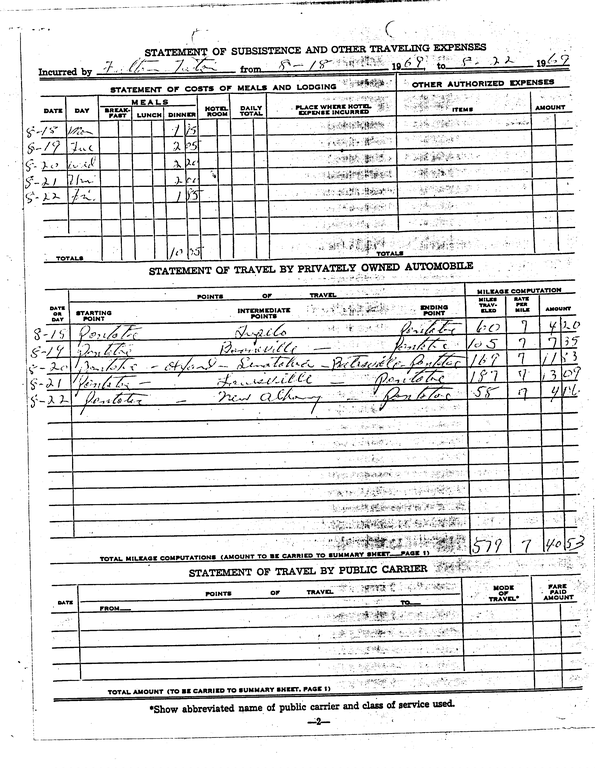 STATEMENT OF SUBSISTENCE AND OTHER TRAVELING EXPENSES
Incurred by from 8-18 1969 to 8-22 1969
STATEMENT OF COSTS OF MEALS AND LODGING OTHER AUTHORIZED EXPENSES
DATE DAY MEALS BREAKFAST LUNCH DINNER HOTEL ROOM DAILY TOTAL PLACE WHERE HOTEL EXPENSE INCURRED ITEMS AMOUNT
8-18 Mon
8-19 Tue 2 05
8-20 Wed 2 20
8-21 2 00
8-22 Fri. 1 85
TOTALS 10 TOTALS
STATEMENT OF TRAVEL BY PRIVATELY OWNED AUTOMOBILE
DATE OR DAY POINTS OF TRAVEL MILEAGE COMPUTATION
STARTING POINT INTERMEDIATE POINTS ENDING POINT MILES TRAVELED RATE PER MILE AMOUNT
8-18 Pontotoc Tupelo Pontotoc 60 7 4 20
8-19 Pontotoc Booneville — Pontotoc 105 7 7 35
8-20 Pontotoc - Oxford - Senatobia - Batesville - Pontotoc 169 7 11 83
8-21 Pontotoc - Louisville Pontotoc 187 7 13 09
8-22 Pontotoc - New Albany - Pontotoc 58 7 4 06
TOTAL MILEAGE COMPUTATIONS (AMOUNT TO BE CARRIED TO SUMMARY SHEET PAGE 1) 579 7 40 53
STATEMENT OF TRAVEL BY PUBLIC CARRIER
DATE POINTS OF TRAVEL MODE OF TRAVEL* FARE PAID AMOUNT
FROM TO
TOTAL AMOUNT (TO BE CARRIED TO SUMMARY SHEET, PAGE 1)
*Show abbreviated name of public carrier and class of service used.
—2—